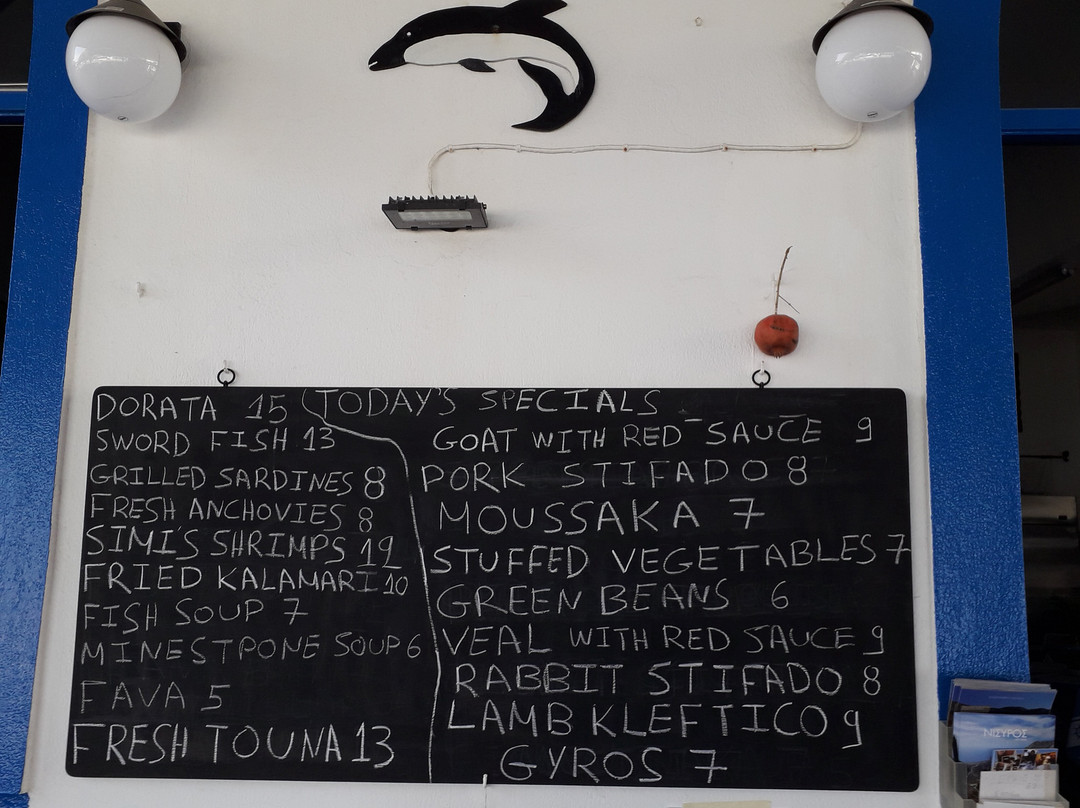 DORATA 15
SWORD FISH 13
GRILLED SARDINES 8
FRESH ANCHOVIES 8
SIMI'S SHRIMPS 12
FRIED KALAMARI 10
FISH SOUP 7
MINESTPONE SOUP 6
FAVA 5
FRESH TOUNA 13
TODAY'S SPECIALS
GOAT WITH RED SAUCE 9
PORK STIFADO 8
MOUSSAKA 7
STUFFED VEGETABLES 7
GREEN BEANS 6
VEAL WITH RED SAUCE 9
RABBIT STIFADO 8
LAMB KLEFTICO 9
GYROS 7
ΝΙΣΥΡΟΣ